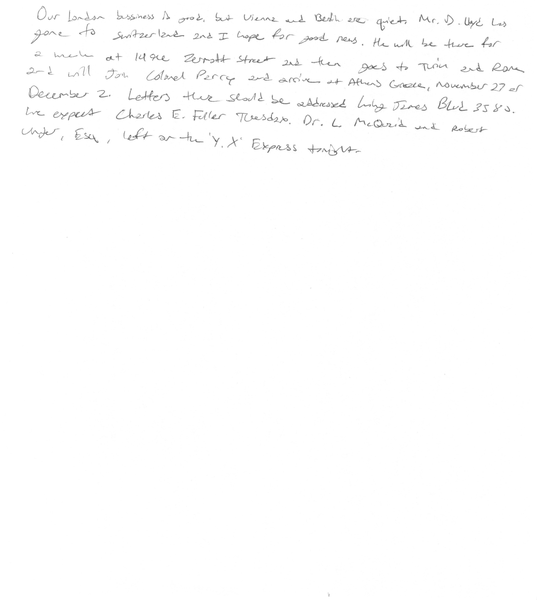 Our London bussiness is good, but Vienna and Berlin are quiet. Mr. D. Lloyd has
gone to Switzerland and I hope for good news. He will be there for
a week at 1496 Zermott Street and then goes to Turin and Rome
and will join Colonel Parry and arrive at Athens Greece, November 27 or
December 2. Letters there should be addressed King James Blvd 3580.
We expect Charles E. Fuller Tuesday. Dr. L. McQuaid and Robert
Unger, Esq., left on the 'Y.X' Express tonight.